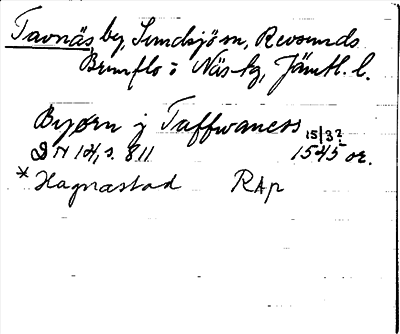 Tavnäs by, Sundsjö sn, Revsunds
Brunflo o Näs tg, Jämtl. l.
Byørn j Taffwaness 15/3?
DN 14, s. 811 1545 or.
* Hagnastad RAp